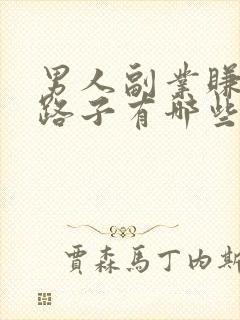 男人副业赚
路子有哪些
贾森马丁内斯